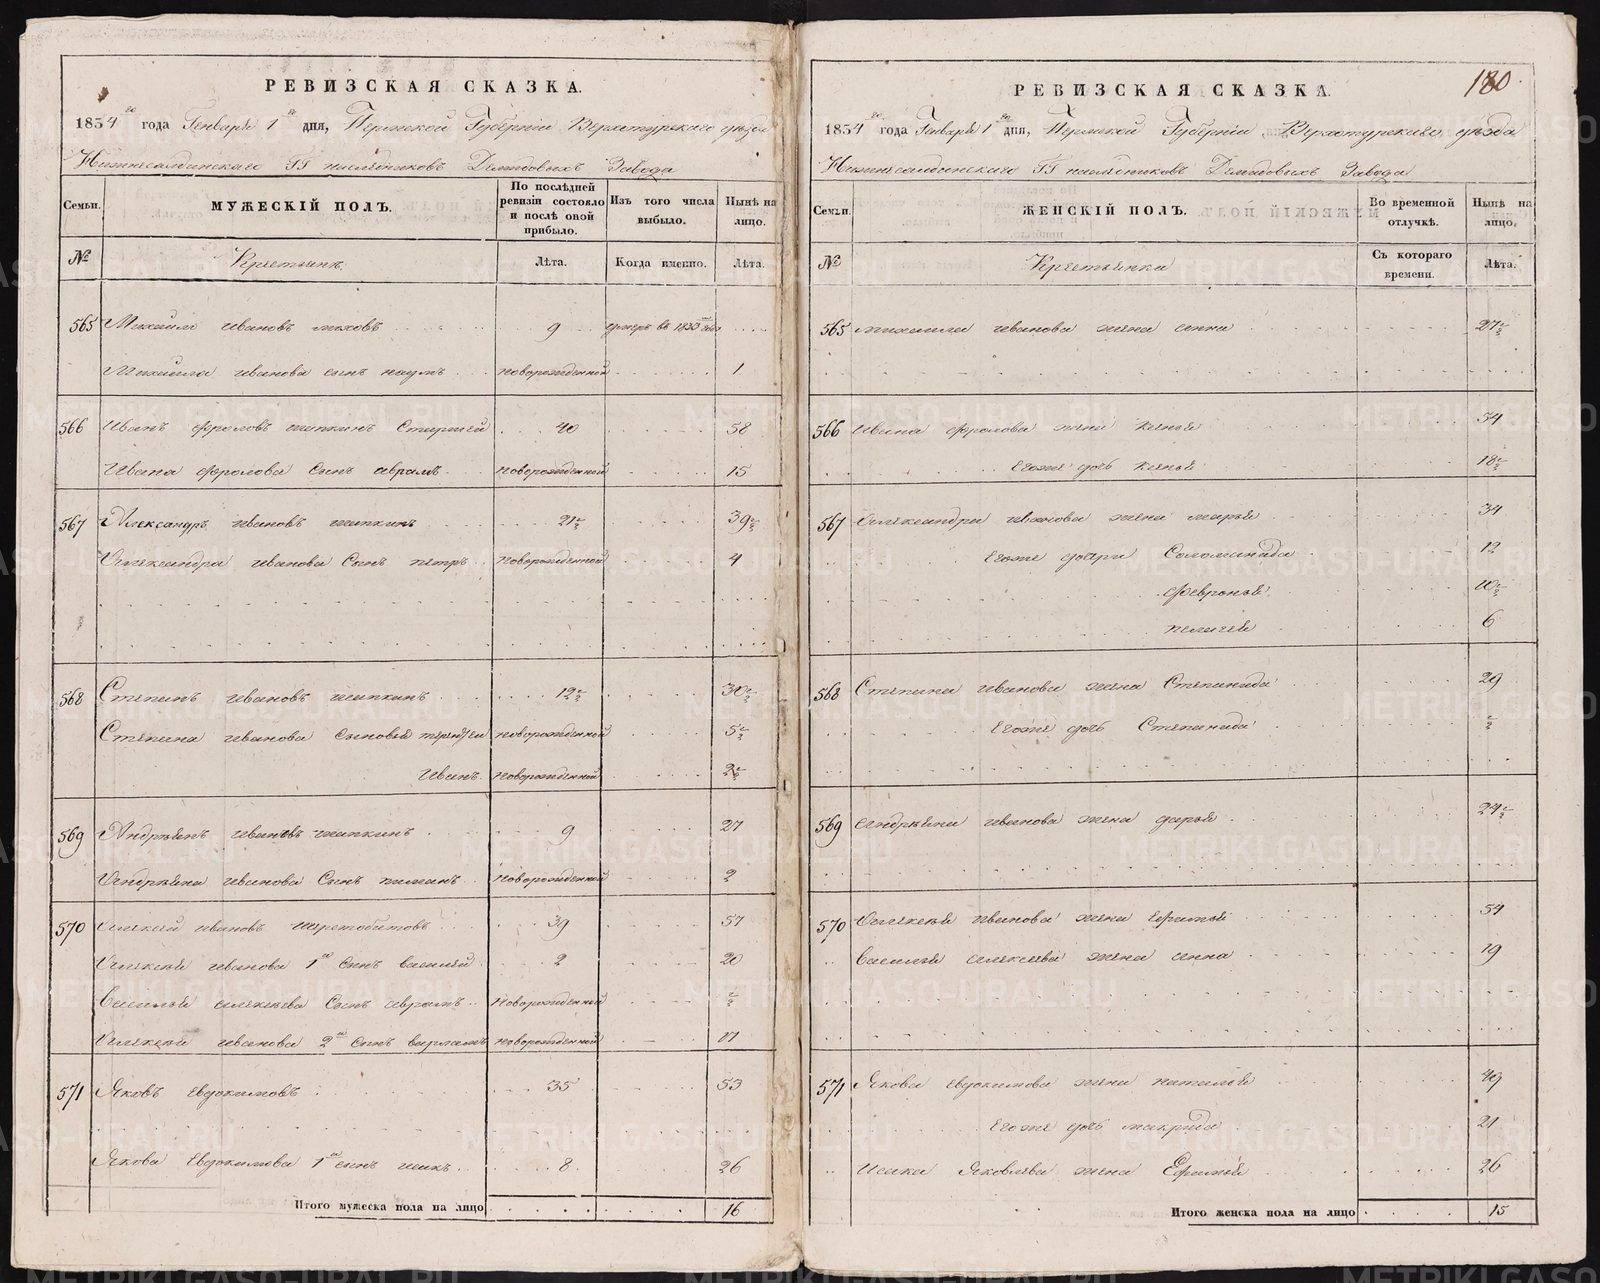 РЕВИЗСКАЯ СКАЗКА.
1834 го года Генваря 1 дня, Пермской Губернiи Верхотурскаго уѣзда
Нижнесалдинскаго ГГ наслѣдниковъ Демидовыхъ Завода
Семьи.
МУЖЕСКIЙ ПОЛЪ.
По послѣдней ревизiи состояло и послѣ оной прибыло.
Изъ того числа выбыло.
Нынѣ на лицо.
№
Крестьянъ.
Лѣта.
Когда именно.
Лѣта.
565 Михайло Ивановъ 9 умеръ въ 1833 годѣ
Михайла Иванова сынъ наумъ новорожденной 1
566 Иванъ Фроловъ шипкинъ Старшей 40 58
Ивана Фролова Сынъ абрамъ новорожденной 15
567 Александръ ивановъ шипкинъ 21½ 39½
Александра иванова Сынъ петръ новорожденной 4
568 Степанъ ивановъ шипкинъ 12½ 30½
Степана иванова Сыновья терентей новорожденной 5½
Иванъ новорожденной 2½
569 Андреянъ ивановъ шипкинъ 9 27
Андреяна иванова Сынъ пиминъ новорожденной 2
570 Алексей ивановъ 39 57
Алексея иванова 1й Сынъ василей 2 20
Василья алексеева Сынъ абрамъ новорожденной ½
Алексея иванова 2й Сынъ варламъ новорожденной 17
571 Яковъ Евдокимовъ 35 53
Якова Евдокимова 1й сынъ исакъ 8 26
Итого мужеска пола на лицо 16
180
РЕВИЗСКАЯ СКАЗКА.
1834 го года Генваря 1 го дня, Пермской Губернiи Верхотурскаго уѣзда
Нижнесалдинскаго ГГ наслѣдниковъ Демидовыхъ Завода
Семьи.
ЖЕНСКIЙ ПОЛЪ.
Во временной отлучкѣ.
Нынѣ на лицо.
№
Крестьянка
Съ котораго времени.
Лѣта.
565 михаила иванова жена анна 27½
566 Ивана фролова жена ксенья 54
Егоже дочь ксенья 18½
567 Александра иванова жена марья 34
Егоже дочери Соломанида 12
февронья 10½
пелагея 6
568 Степана иванова жена Степанида 29
Егоже дочь Степанида ½
569 Андреяна иванова жена дарья 24½
570 Алексея иванова жена ефимья 54
Василья алексеева жена анна 19
571 Якова Евдокимова жена наталья 49
Егоже дочь макрида 21
Исака Яковлева жена Ефимья 26
Итого женска пола на лицо 15
METRIKI.GASO-URAL.RU